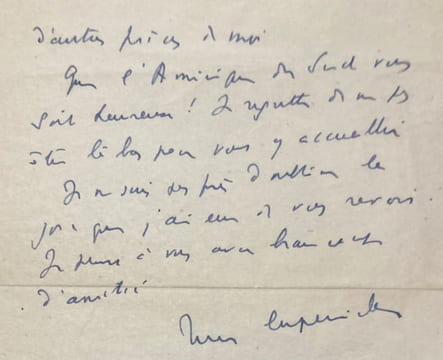 d'autres pièces de moi
Que l'Amérique du Sud vous
soit heureuse ! Je regrette de ne pas
être là-bas pour vous y accueillir
Je ne suis pas près d'oublier la
joie que j'ai eue de vous revoir.
Je pense à vous avec beaucoup
d'amitié
Jules Supervielle